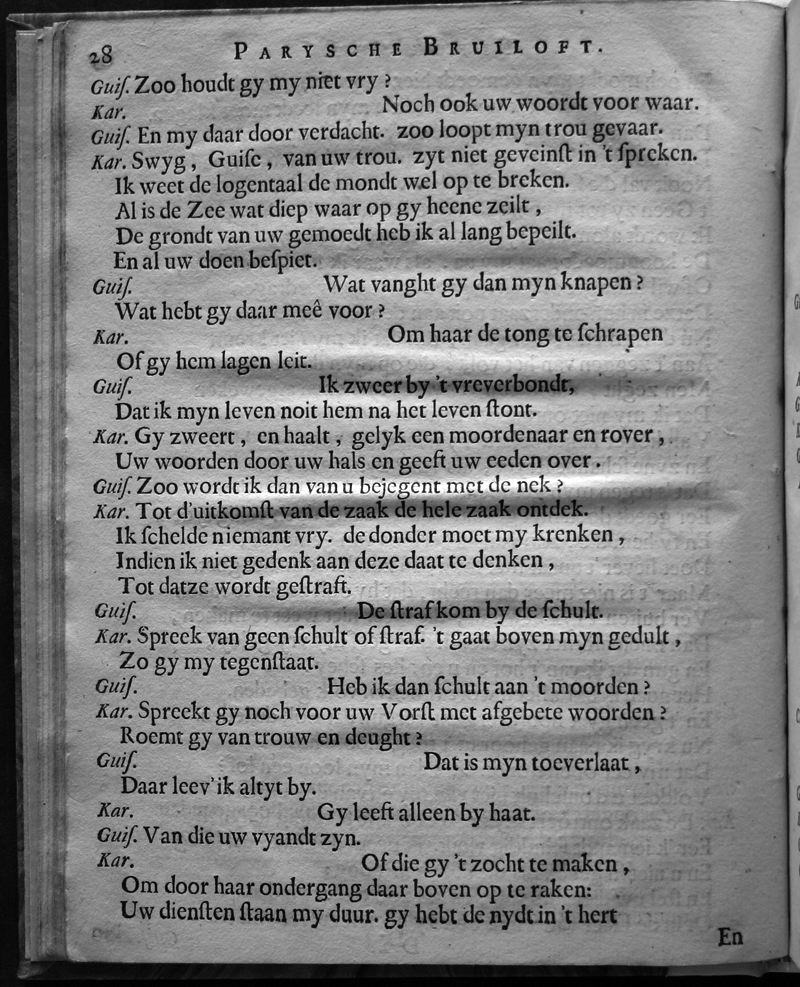 28 PARYSCHE BRUILOFT.
Guiſ. Zoo houdt gy my niet vry?
Kar. Noch ook uw woordt voor waar.
Guiſ. En my daar door verdacht. zoo loopt myn trou gevaar.
Kar. Swyg, Guiſe, van uw trou. zyt niet geveinſt in 't ſpreken.
Ik weet de logentaal de mondt wel op te breken.
Al is de Zee wat diep waar op gy heene zeilt,
De grondt van uw gemoedt heb ik al lang bepeilt.
En al uw doen beſpiet.
Guiſ. Wat vanght gy dan myn knapen?
Wat hebt gy daar meê voor?
Kar. Om haar de tong te ſchrapen
Of gy hem lagen leit.
Guiſ. Ik zweer by 't vreverbondt,
Dat ik myn leven noit hem na het leven ſtont.
Kar. Gy zweert, en haalt, gelyk een moordenaar en rover,
Uw woorden door uw hals en geeft uw eeden over.
Guiſ. Zoo wordt ik dan van u bejegent met de nek?
Kar. Tot d'uitkomſt van de zaak de hele zaak ontdek.
Ik ſchelde niemant vry. de donder moet my krenken,
Indien ik niet gedenk aan deze daat te denken,
Tot datze wordt geſtraft.
Guiſ. De ſtraf kom by de ſchult.
Kar. Spreek van geen ſchult of ſtraf. 't gaat boven myn gedult,
Zo gy my tegenſtaat.
Guiſ. Heb ik dan ſchult aan 't moorden?
Kar. Spreekt gy noch voor uw Vorſt met afgebete woorden?
Roemt gy van trouw en deught?
Guiſ. Dat is myn toeverlaat,
Daar leev' ik altyt by.
Kar. Gy leeft alleen by haat.
Guiſ. Van die uw vyandt zyn.
Kar. Of die gy 't zocht te maken,
Om door haar ondergang daar boven op te raken:
Uw dienſten ſtaan my duur. gy hebt de nydt in 't hert
En